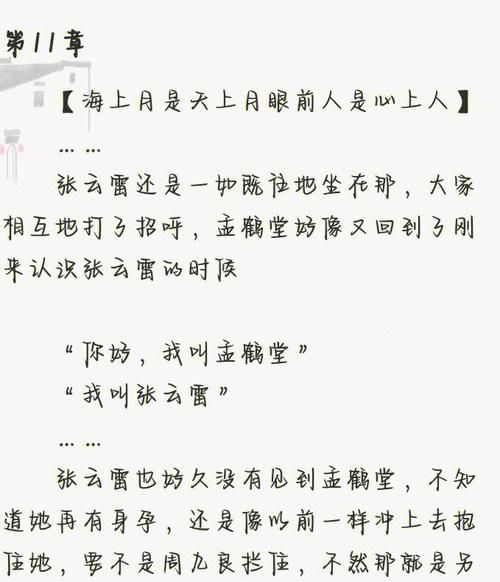 第11章
【海上月是天上月眼前人是心上人】
… …
张云雷还是一如既往地坐在那，大家
相互地打了招呼，孟鹤堂好像又回到了刚
来认识张云雷的时候
“你好，我叫孟鹤堂”
“我叫张云雷”
… …
张云雷也好久没有见到孟鹤堂，不知
道她再有身孕，还是像以前一样冲上去抱
住她，要不是周九良拦住，不然那就是另